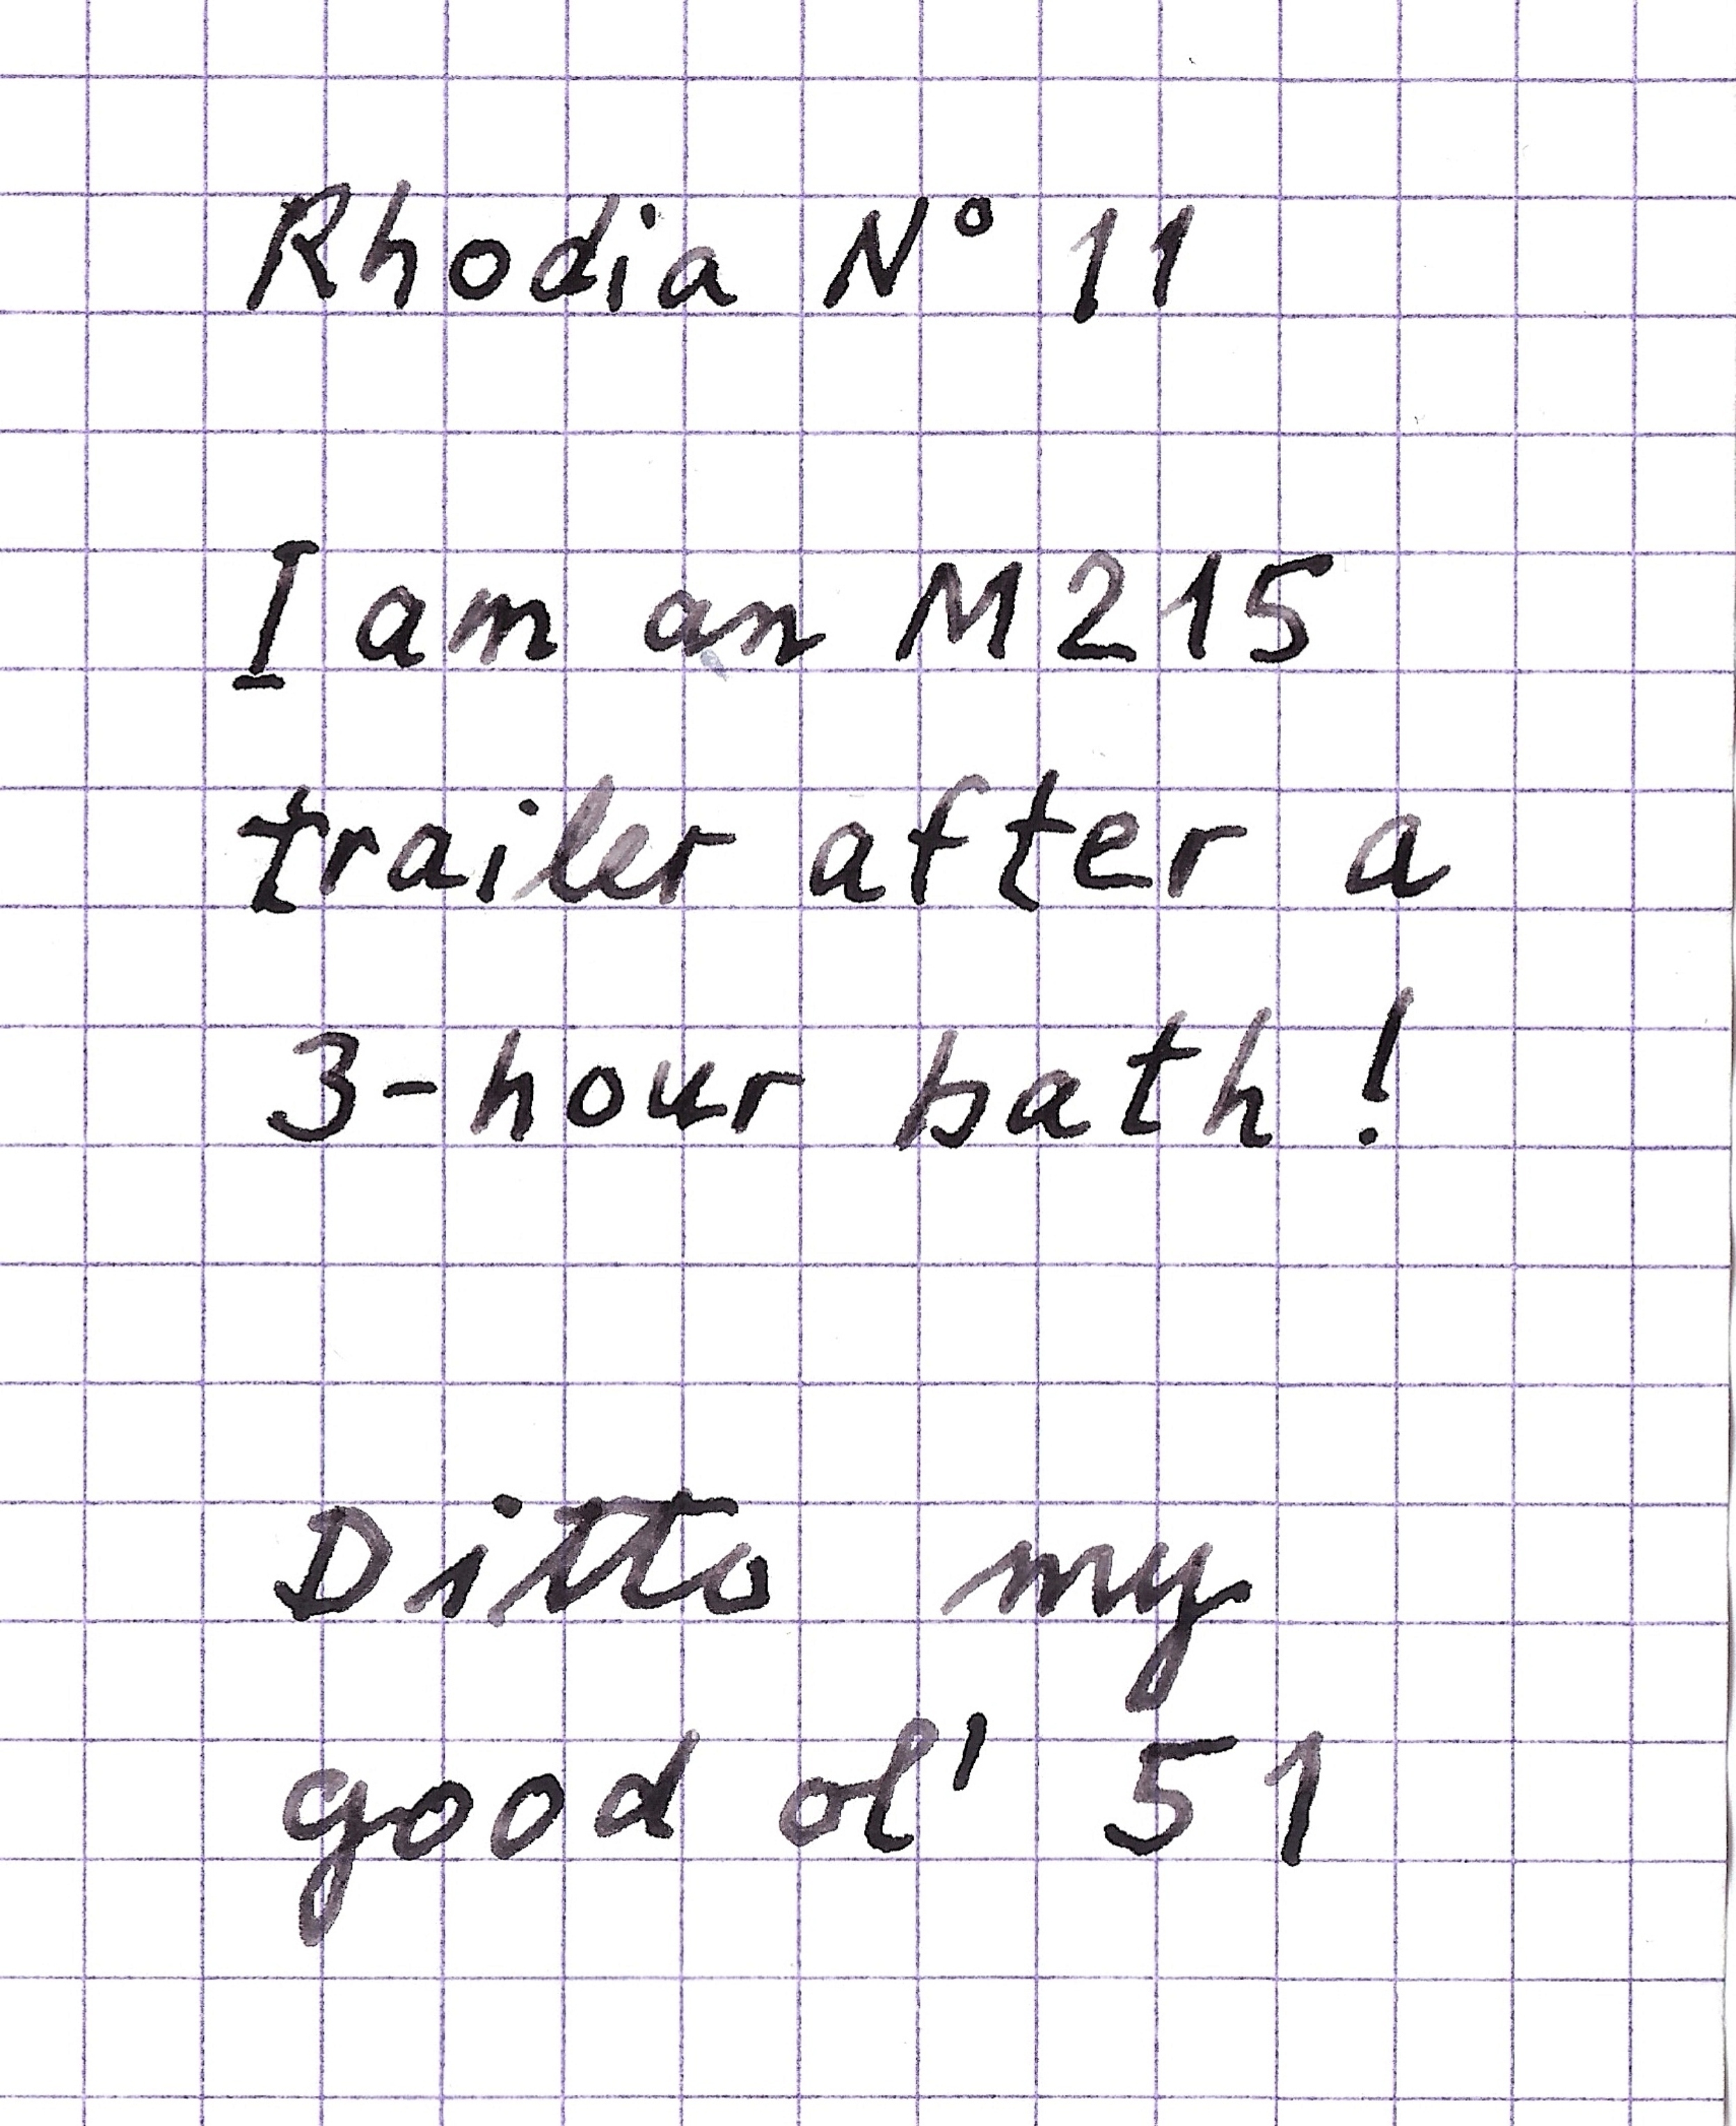 Rhodia N° 11
I am an M215
trailer after a
3-hour bath!
Ditto my
good ol' 51